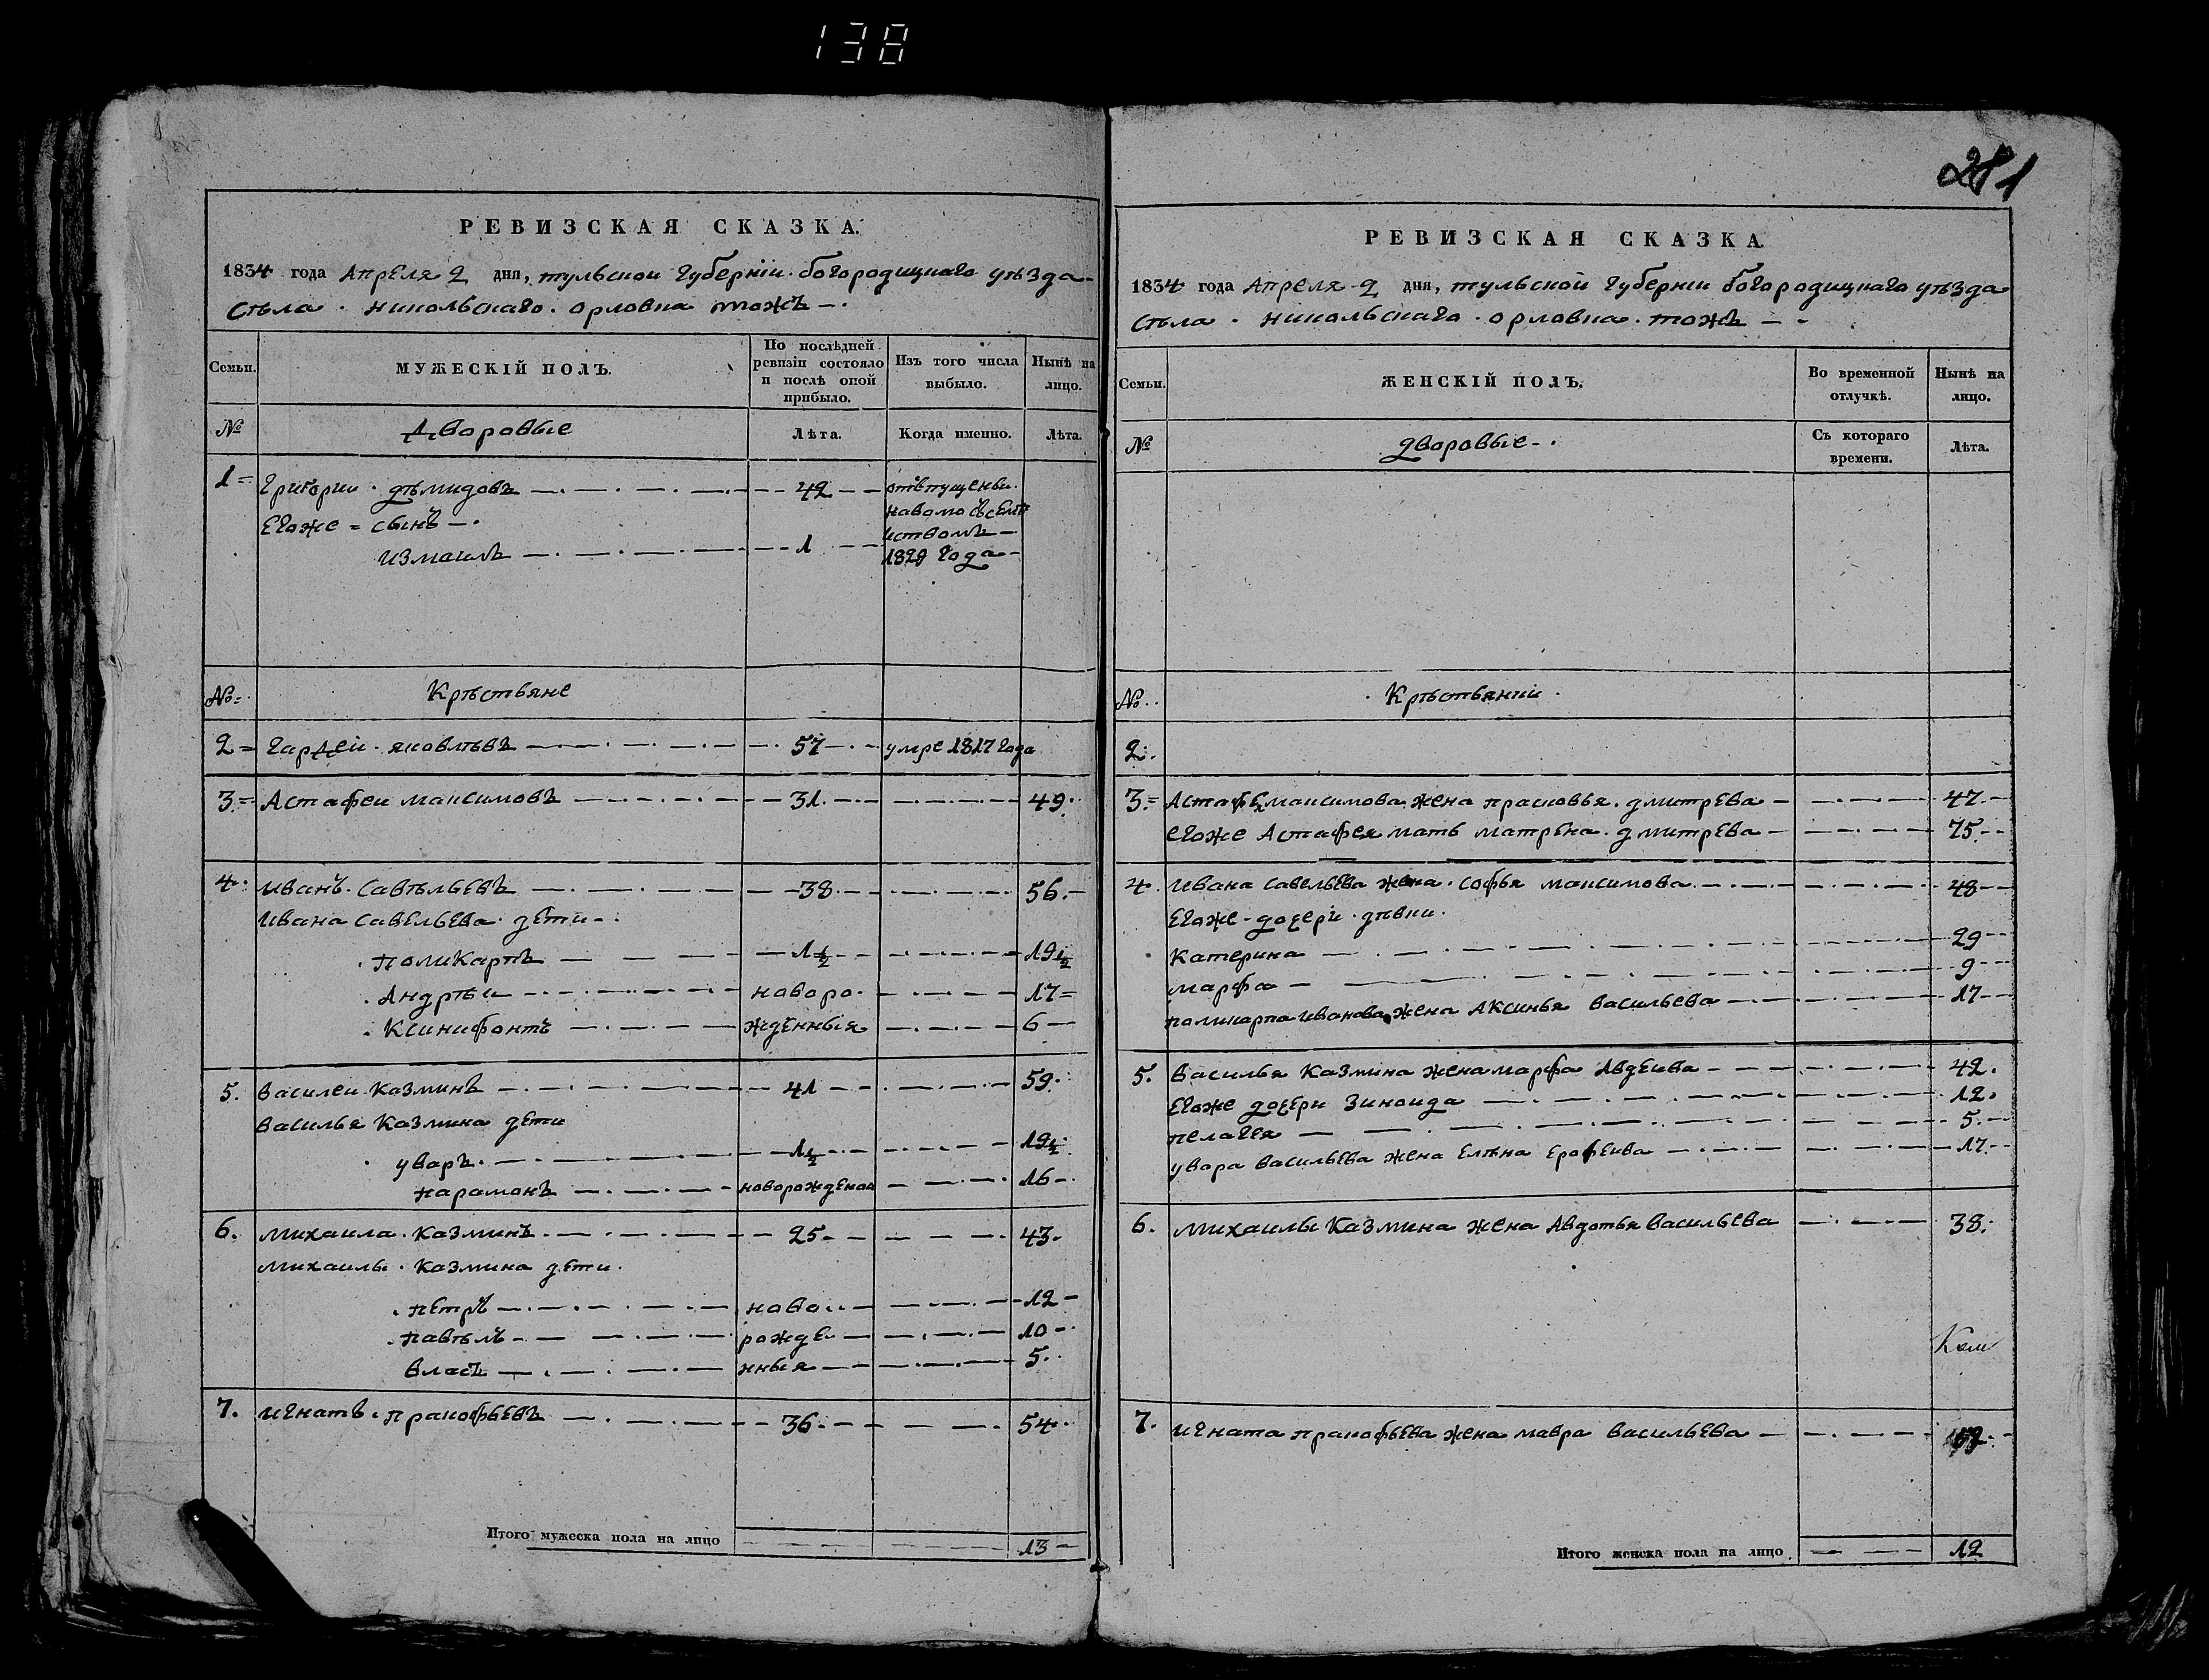 138
281
РЕВИЗСКАЯ СКАЗКА.
1834 года Апреля 2 дня, тульскои губернiи богородицкаго уѣзда
сѣла никольскаго орловка тожъ
Семьи.
МУЖЕСКІЙ ПОЛЪ.
По послѣдней ревизіи состояло и послѣ оной прибыло.
Изъ того числа выбыло.
Нынѣ на лицо.
№ Дворовые Лѣта. Когда именно. Лѣта.
1 Григории дѣмидовъ 42 отъпущенъи
Егоже сынъ наволю съсемѣ
иствомъ
измаилъ 1 1828 года
№ Крѣстьяне
2 Гардеи яковлѣвъ 57 умре 1817 года
3 Астафеи максимовъ 31 49
4 иванъ савѣльевъ 38 56
ивана савельева дети
поликарпъ 1 1/2 19 1/2
Андрѣи новоро 17
Ксинифонтъ жденныя 6
5. василеи казминъ 41 59
василья казмина дети
уваръ 1 1/2 19 1/2
парамонъ новорожденои 16
6. михаила казминъ 25 43
михаилы казмина дети
петръ ново 12
павѣлъ рожде 10
власъ нныя 5
7. игнатъ пракофьевъ 36 54
Итого мужеска пола на лицо 13
РЕВИЗСКАЯ СКАЗКА.
1834 года Апреля 2 дня, тульской губернии богородицкаго уѣзда
сѣла никольскаго орловка тожъ
Семьи.
ЖЕНСКІЙ ПОЛЪ.
Во временной отлучкѣ.
Нынѣ на лицо.
№ дворовые Съ котораго времени. Лѣта.
№ Крѣстьянки
2.
3. Астафея максимова жена прасковья дмитрева 47
егоже Астафея мать матрена дмитрева 75
4. ивана савельева жена софья максимова 48
Егоже дочери дѣвки
Катерина 29
марфа 9
поликарпа иванова жена Аксинья васильева 17
5. василья казмина жена марфа Авдеива 42
Егоже дочери зиноида 12
пелагея 5
увара васильева жена елѣна ерофеива 17
6. михаилы казмина жена Авдотья васильева 38
7. игната пракофьева жена мавра васильева
Итого женска пола на лицо 12